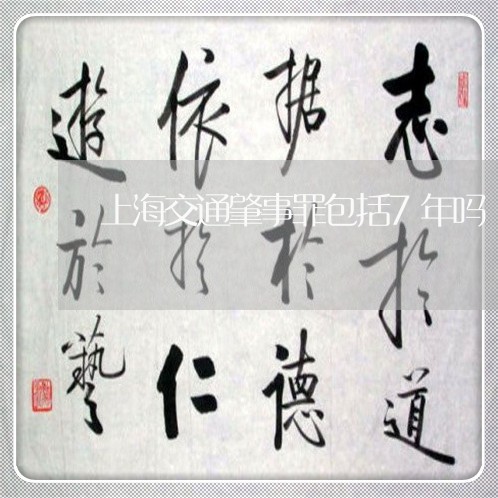 志於道
据於德
依於仁
遊於藝
上海交通肇事罪包括7年吗